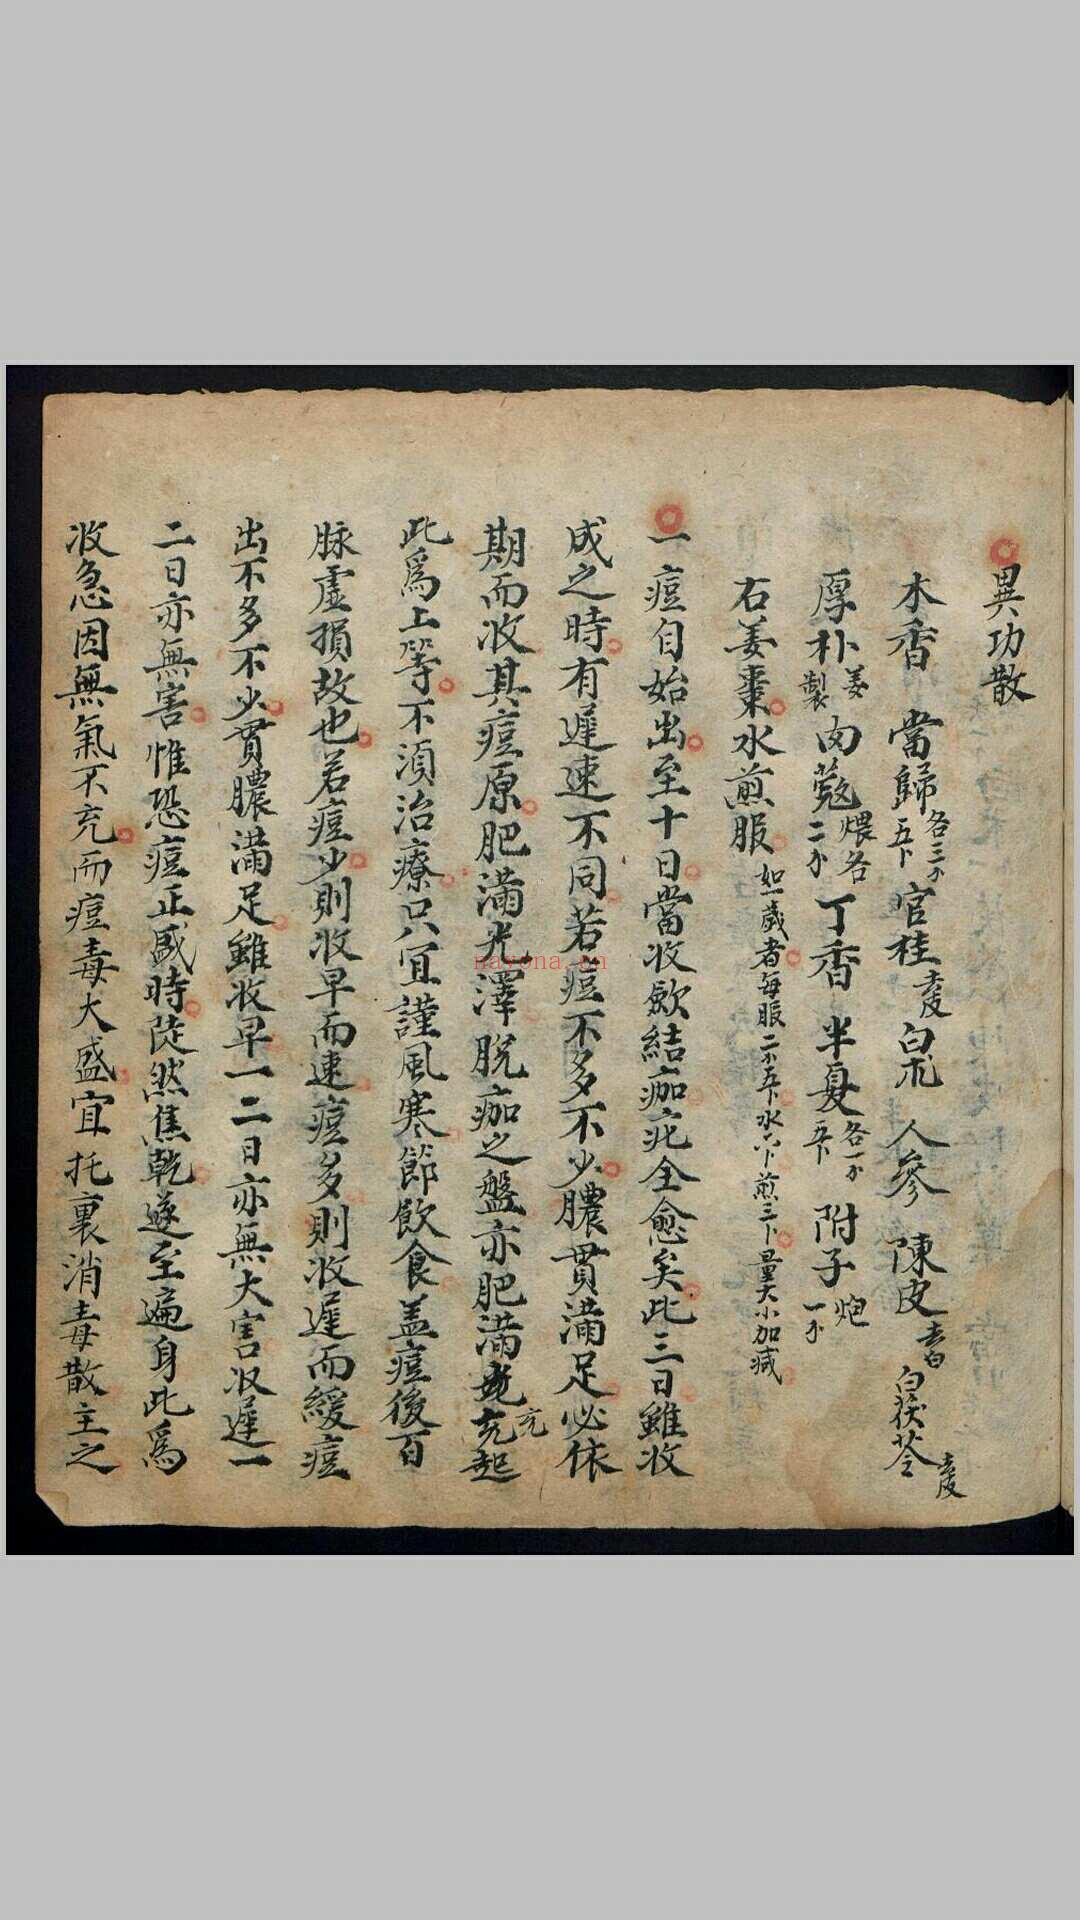 異功散
木香 當歸各三分五卜 官桂去皮 白朮 人參 陳皮去白 白茯苓去皮
厚朴姜製 肉蔻煨各二分 丁香 半夏各一分五卜 附子炮一分
右姜棗水煎服如一歲者每服二分五卜水六卜煎三卜量大小加減
一痘自始出至十日當收歛結痂疕全愈矣此三日雖收
成之時有遲速不同若痘不多不少膿貫滿足必依
期而收其痘原肥滿光澤脫痂之盤亦肥滿充起
充
此爲上等不須治療只宜謹風寒節飲食盖痘後百
脉虛損故也若痘少則收早而速痘多則收遲而緩痘
出不多不少貫膿滿足雖收早一二日亦無大害收遲一
二日亦無害惟恐痘正盛時陡然焦乾遂至遍身此爲
收急因無氣不充而痘毒大盛宜托裏消毒散主之
nayona.cn